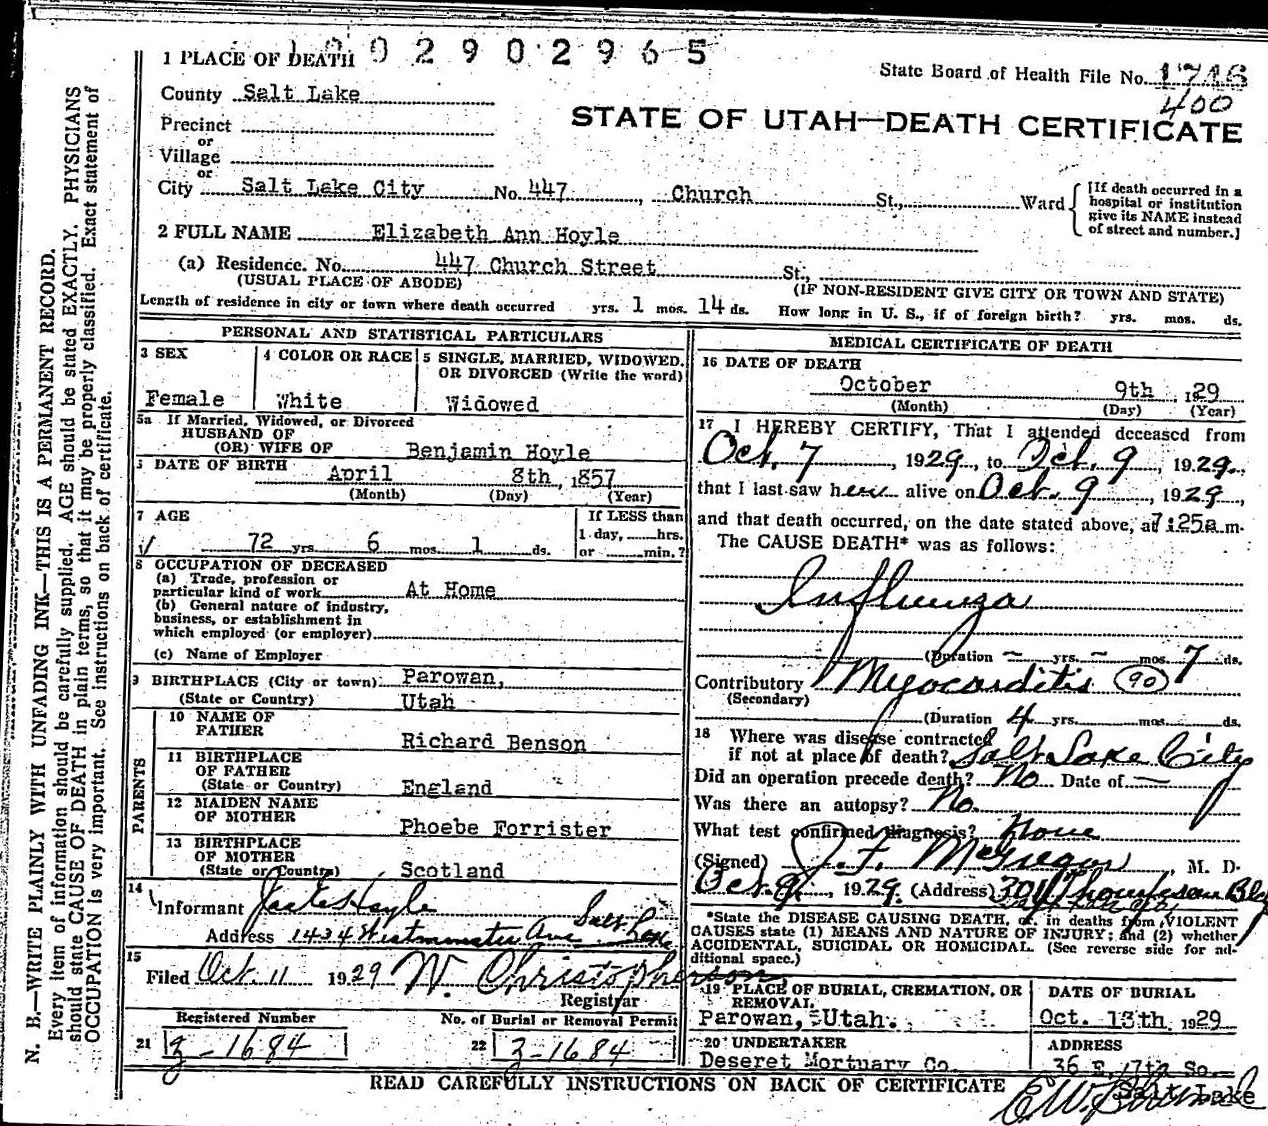 1 PLACE OF DEATH
1002902965
State Board of Health File No. 1746
400
County Salt Lake
STATE OF UTAH—DEATH CERTIFICATE
Precinct
or
Village
or
City Salt Lake City No. 447, Church St., Ward
[If death occurred in a
hospital or institution
give its NAME instead
of street and number.]
2 FULL NAME Elizabeth Ann Hoyle
(a) Residence. No. 447 Church Street St.,
(USUAL PLACE OF ABODE) (IF NON-RESIDENT GIVE CITY OR TOWN AND STATE)
Length of residence in city or town where death occurred yrs. 1 mos. 14 ds. How long in U. S., if of foreign birth? yrs. mos. ds.
PERSONAL AND STATISTICAL PARTICULARS
3 SEX
Female
4 COLOR OR RACE
White
5 SINGLE, MARRIED, WIDOWED,
OR DIVORCED (Write the word)
Widowed
5a If Married, Widowed, or Divorced
HUSBAND OF
(OR) WIFE OF Benjamin Hoyle
6 DATE OF BIRTH April 8th, 1857
(Month) (Day) (Year)
7 AGE
72 yrs. 6 mos. 1 ds.
If LESS than
1 day, hrs.
or min.?
8 OCCUPATION OF DECEASED
(a) Trade, profession or
particular kind of work At Home
(b) General nature of industry,
business, or establishment in
which employed (or employer)
(c) Name of Employer
9 BIRTHPLACE (City or town) Parowan,
(State or Country) Utah
PARENTS
10 NAME OF
FATHER Richard Benson
11 BIRTHPLACE
OF FATHER
(State or Country) England
12 MAIDEN NAME
OF MOTHER Phoebe Forrister
13 BIRTHPLACE
OF MOTHER
(State or Country) Scotland
14
Informant Hoyle
Address 1434 Westminster Ave Salt Lake
15
Filed Oct. 11 1929 W. Christopherson
Registrar
Registered Number
21 3-1684
No. of Burial or Removal Permit
22 3-1684
MEDICAL CERTIFICATE OF DEATH
16 DATE OF DEATH
October 9th, 29
(Month) (Day) (Year)
17 I HEREBY CERTIFY, That I attended deceased from
Oct. 7, 1929, to Oct. 9, 1929,
that I last saw her alive on Oct. 9, 1929,
and that death occurred, on the date stated above, at 7:25a m.
The CAUSE DEATH* was as follows:
Influenza
(Duration — yrs. — mos. 7 ds.
Contributory Myocarditis (90)
(Secondary)
(Duration 4 yrs. mos. ds.
18 Where was disease contracted
if not at place of death? Salt Lake City
Did an operation precede death? No Date of —
Was there an autopsy? No
What test confirmed diagnosis? None
(Signed) J. F. McGregor, M. D.
Oct. 9, 1929. (Address) 301 Thompson Bldg
*State the DISEASE CAUSING DEATH, or, in deaths from VIOLENT
CAUSES state (1) MEANS AND NATURE OF INJURY; and (2) whether
ACCIDENTAL, SUICIDAL OR HOMICIDAL. (See reverse side for ad-
ditional space.)
19 PLACE OF BURIAL, CREMATION, OR
REMOVAL
Parowan, Utah.
DATE OF BURIAL
Oct. 13th 1929
20 UNDERTAKER
Deseret Mortuary Co.
ADDRESS
36 E. 7th So.
Salt Lake
READ CAREFULLY INSTRUCTIONS ON BACK OF CERTIFICATE
N. B.—WRITE PLAINLY WITH UNFADING INK—THIS IS A PERMANENT RECORD.
Every item of information should be carefully supplied. AGE should be stated EXACTLY. PHYSICIANS
should state CAUSE OF DEATH in plain terms, so that it may be properly classified. Exact statement of
OCCUPATION is very important. See instructions on back of certificate.